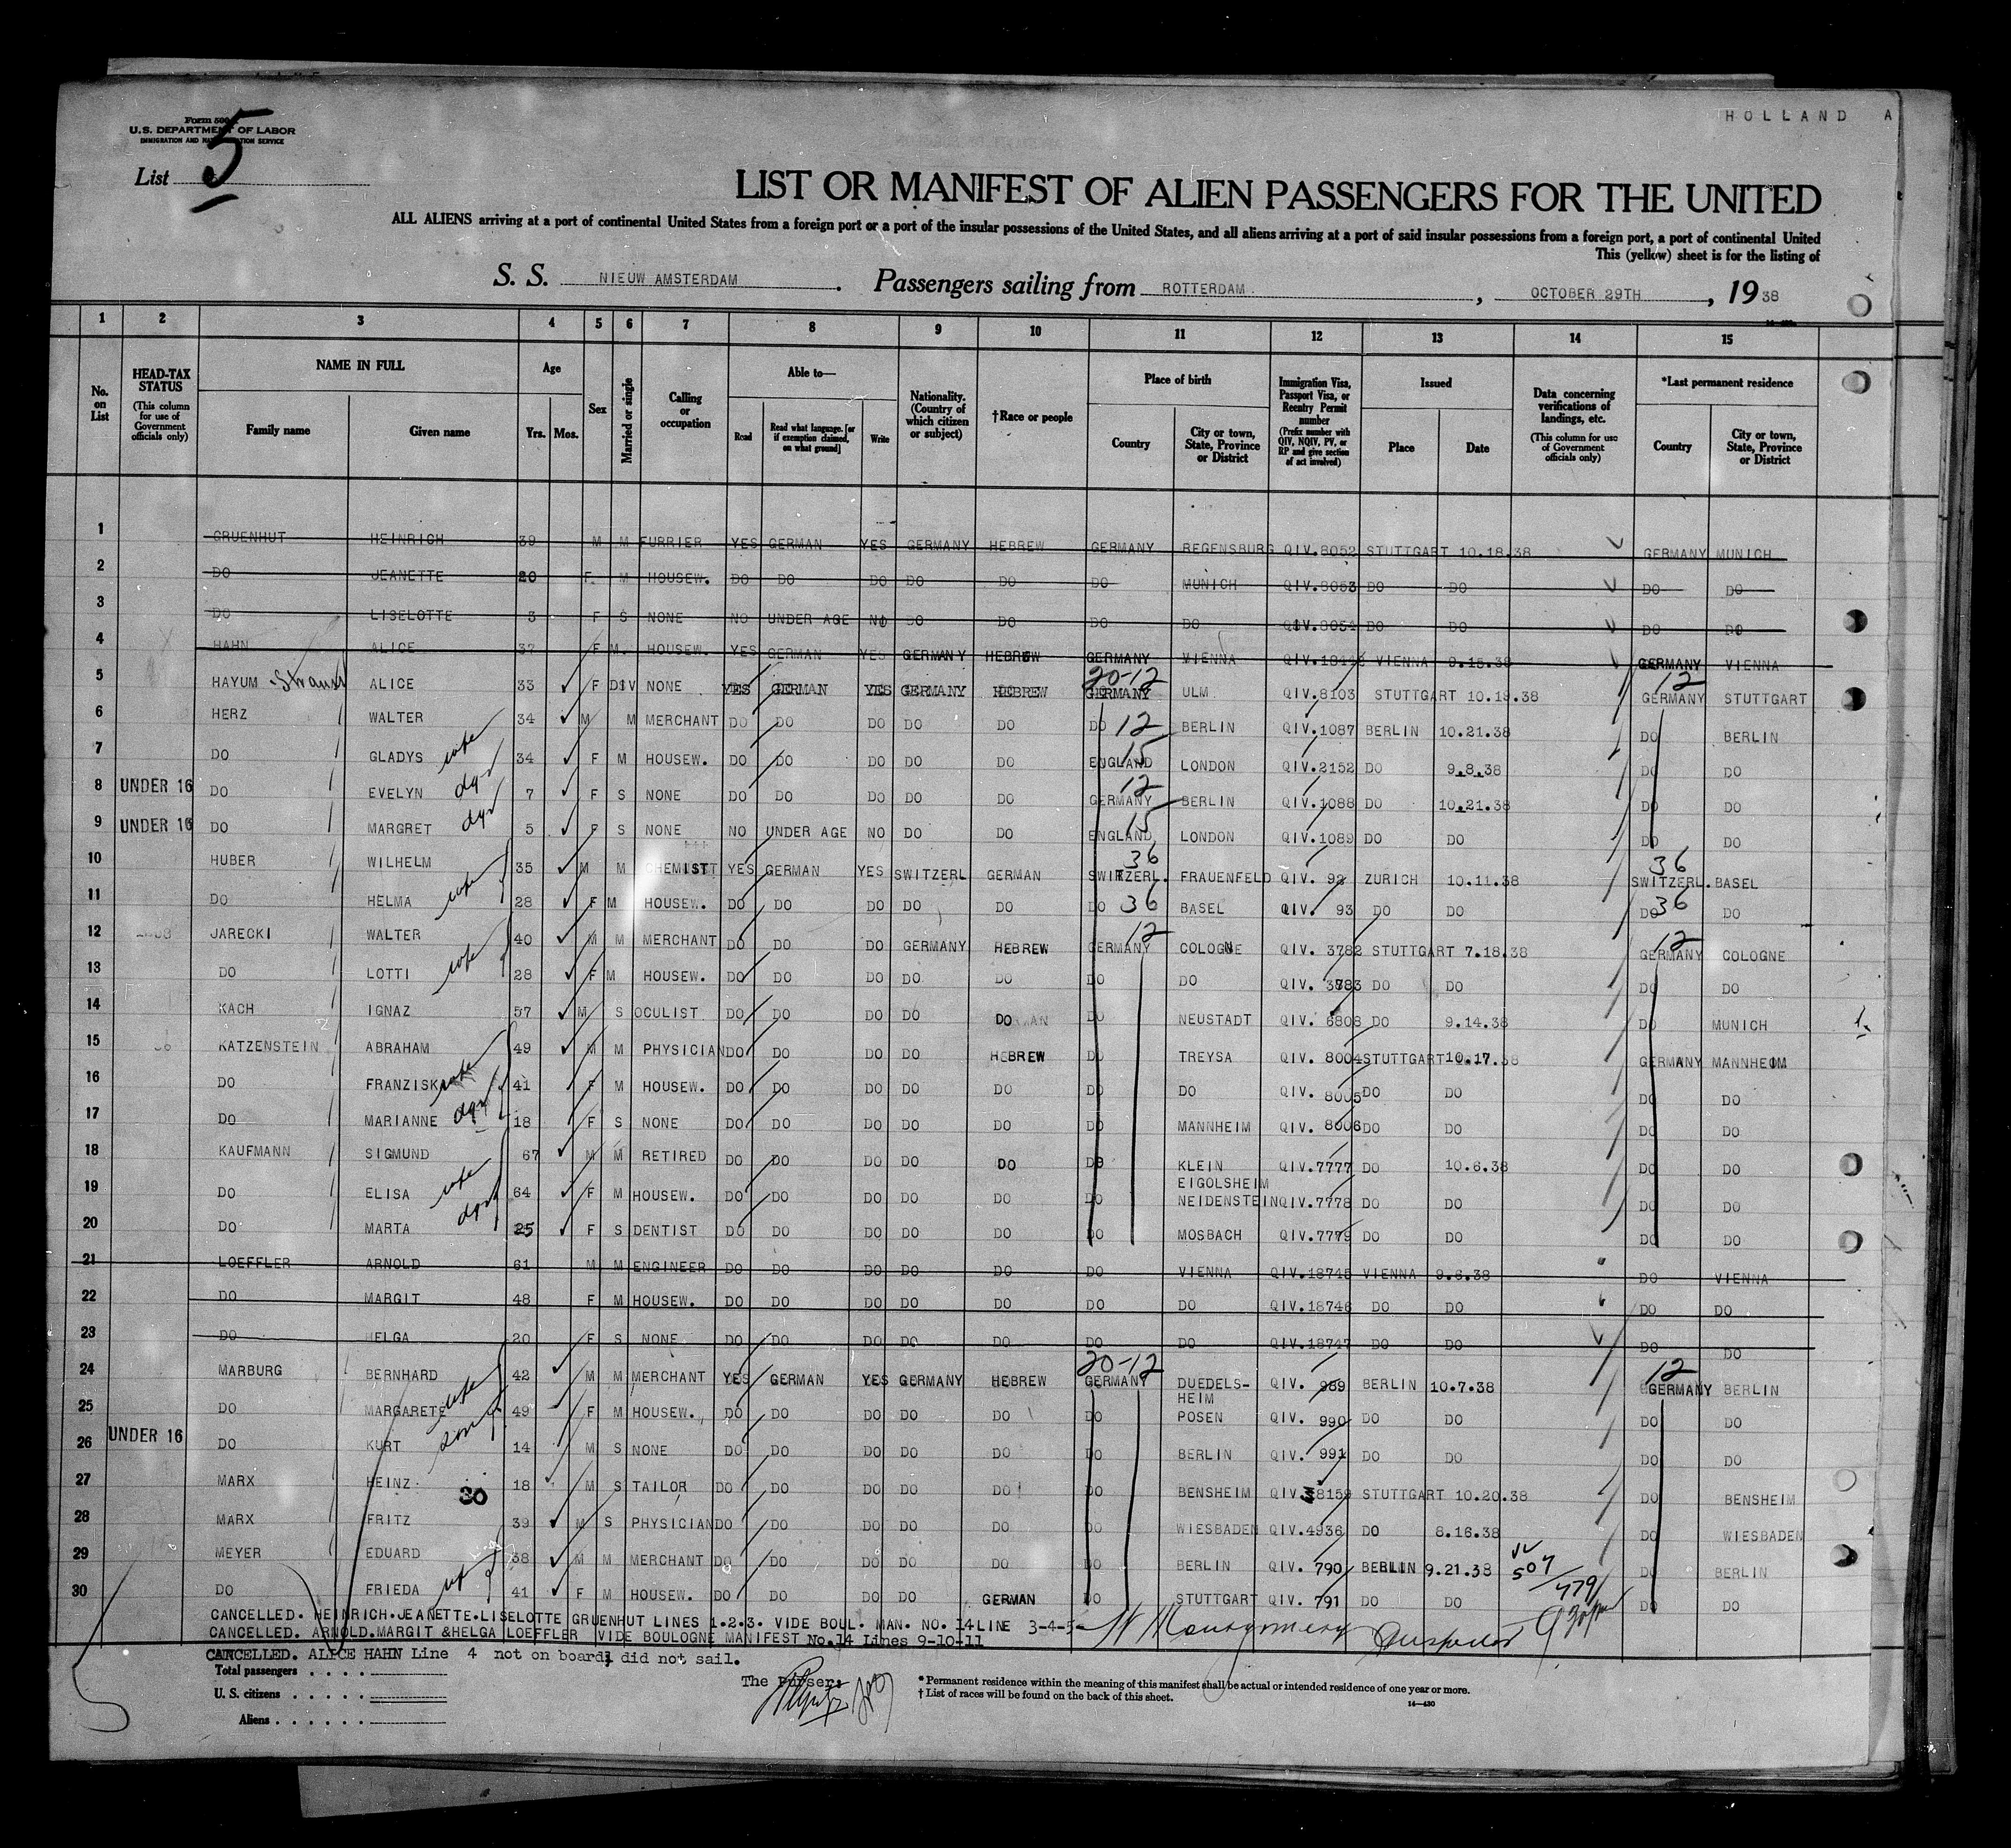 HOLLAND A
Form 500
U.S. DEPARTMENT OF LABOR
IMMIGRATION AND NATURALIZATION SERVICE
List 5
LIST OR MANIFEST OF ALIEN PASSENGERS FOR THE UNITED
ALL ALIENS arriving at a port of continental United States from a foreign port or a port of the insular possessions of the United States, and all aliens arriving at a port of said insular possessions from a foreign port, a port of continental United
This (yellow) sheet is for the listing of
S. S. NIEUW AMSTERDAM. Passengers sailing from ROTTERDAM, OCTOBER 29TH, 1938
1 2 3 4 5 6 7 8 9 10 11 12 13 14 15
No. on List
HEAD-TAX STATUS (This column for use of Government officials only)
NAME IN FULL
Family name Given name
Age
Yrs. Mos.
Sex
Married or single
Calling or occupation
Able to—
Read Read what language. [or if exemption claimed, on what ground] Write
Nationality. (Country of which citizen or subject)
†Race or people
Place of birth
Country City or town, State, Province or District
Immigration Visa, Passport Visa, or Reentry Permit number (Prefix number with QIV, NQIV, PV, or RP and give section of act involved)
Issued
Place Date
Data concerning verifications of landings, etc. (This column for use of Government officials only)
*Last permanent residence
Country City or town, State, Province or District
1 GRUENHUT HEINRICH 39 M M FURRIER YES GERMAN YES GERMANY HEBREW GERMANY REGENSBURG QIV.8052 STUTTGART 10.18.38 GERMANY MUNICH
2 DO JEANETTE 20 F M HOUSEW. DO DO DO DO DO DO MUNICH QIV.8053 DO DO DO DO
3 DO LISELOTTE 3 F S NONE NO UNDER AGE NO DO DO DO DO QIV.8054 DO DO DO DO
4 HAHN ALICE 37 F M. HOUSEW. YES GERMAN YES GERMANY HEBREW GERMANY VIENNA VIENNA GERMANY VIENNA
5 HAYUM Strauss ALICE 33 F DIV NONE YES GERMAN YES GERMANY HEBREW 20-12 GERMANY ULM QIV.8103 STUTTGART 10.19.38 12 GERMANY STUTTGART
6 HERZ WALTER 34 M M MERCHANT DO DO DO DO DO DO 12 BERLIN QIV.1087 BERLIN 10.21.38 DO BERLIN
7 DO GLADYS wife 34 F M HOUSEW. DO DO DO DO DO 15 ENGLAND LONDON QIV.2152 DO 9.8.38 DO DO
8 UNDER 16 DO EVELYN dgr 7 F S NONE DO DO DO DO DO 12 GERMANY BERLIN QIV.1088 DO 10.21.38 DO DO
9 UNDER 16 DO MARGRET dgr 5 F S NONE NO UNDER AGE NO DO DO 15 ENGLAND LONDON QIV.1089 DO DO DO DO
10 HUBER WILHELM 35 M M CHEMIST YES GERMAN YES SWITZERL GERMAN 36 SWITZERL. FRAUENFELD QIV. 92 ZURICH 10.11.38 36 SWITZERL. BASEL
11 DO HELMA wife 28 F M HOUSEW. DO DO DO DO DO DO 36 BASEL QIV. 93 DO DO DO 36 DO
12 JARECKI WALTER 40 M M MERCHANT DO DO DO GERMANY HEBREW 12 GERMANY COLOGNE QIV. 3782 STUTTGART 7.18.38 12 GERMANY COLOGNE
13 DO LOTTI wife 28 F M HOUSEW. DO DO DO DO DO DO DO QIV. 3783 DO DO DO DO
14 KACH IGNAZ 57 M S OCULIST DO DO DO DO DO DO NEUSTADT QIV. 6808 DO 9.14.38 DO MUNICH
15 KATZENSTEIN ABRAHAM 49 M M PHYSICIAN DO DO DO DO HEBREW DO TREYSA QIV. 8004 STUTTGART 10.17.38 GERMANY MANNHEIM
16 DO FRANZISKA wife 41 F M HOUSEW. DO DO DO DO DO DO DO QIV. 8005 DO DO DO DO
17 DO MARIANNE dgr 18 F S NONE DO DO DO DO DO DO MANNHEIM QIV. 8006 DO DO DO DO
18 KAUFMANN SIGMUND 67 M M RETIRED DO DO DO DO DO DO KLEIN EIGOLSHEIM QIV.7777 DO 10.6.38 DO DO
19 DO ELISA wife 64 F M HOUSEW. DO DO DO DO DO DO NEIDENSTEIN QIV.7778 DO DO DO DO
20 DO MARTA dgr 25 F S DENTIST DO DO DO DO DO DO MOSBACH QIV.7779 DO DO DO DO
21 LOEFFLER ARNOLD 61 M M ENGINEER DO DO DO DO DO DO VIENNA QIV.18745 VIENNA 9.6.38 DO VIENNA
22 DO MARGIT 48 F M HOUSEW. DO DO DO DO DO DO DO QIV.18746 DO DO DO DO
23 DO HELGA 20 F S NONE DO DO DO DO DO DO DO QIV.18747 DO DO DO DO
24 MARBURG BERNHARD 42 M M MERCHANT YES GERMAN YES GERMANY HEBREW 20-12 GERMANY DUEDELS-HEIM QIV. 989 BERLIN 10.7.38 12 GERMANY BERLIN
25 DO MARGARETE wife 49 F M HOUSEW. DO DO DO DO DO DO POSEN QIV. 990 DO DO DO DO
26 UNDER 16 DO KURT son 14 M S NONE DO DO DO DO DO DO BERLIN QIV. 991 DO DO DO DO
27 MARX HEINZ 30 18 M S TAILOR DO DO DO DO DO DO BENSHEIM QIV. 8159 STUTTGART 10.20.38 DO BENSHEIM
28 MARX FRITZ 39 M S PHYSICIAN DO DO DO DO DO DO WIESBADEN QIV.4936 DO 8.16.38 DO WIESBADEN
29 MEYER EDUARD 38 M M MERCHANT DO DO DO DO DO DO BERLIN QIV. 790 BERLIN 9.21.38 507/479 DO BERLIN
30 DO FRIEDA wife 41 F M HOUSEW. DO DO DO DO GERMAN DO STUTTGART QIV. 791 DO DO DO DO
CANCELLED. HEINRICH.JEANETTE.LISELOTTE GRUENHUT LINES 1.2.3. VIDE BOUL. MAN. NO. 14 LINE 3-4-5- Montgomery Inspector
CANCELLED. ARNOLD.MARGIT &HELGA LOEFFLER VIDE BOULOGNE MANIFEST No.14 Lines 9-10-11
CANCELLED. ALICE HAHN Line 4 not on board; did not sail.
Total passengers
U. S. citizens
Aliens
The Purser:
* Permanent residence within the meaning of this manifest shall be actual or intended residence of one year or more.
† List of races will be found on the back of this sheet.
14—430